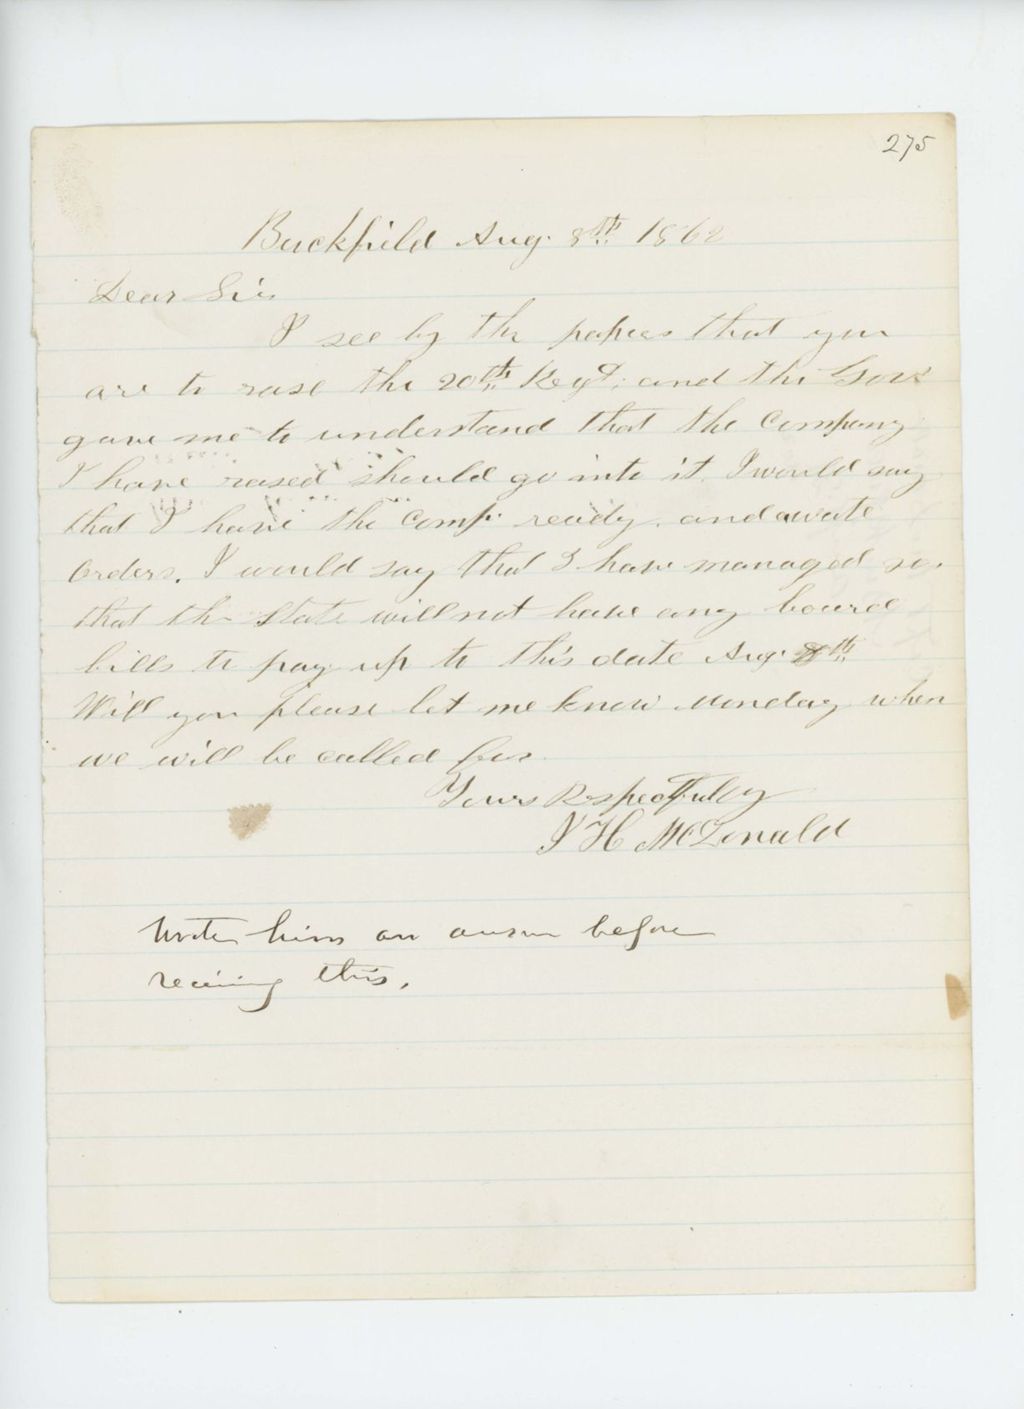 275
Buckfield Aug. 8th 1862
Dear Sir
I see by the papers that you
are to rase the 20th Regt; and the Govr
gave me to understand that the Company
I have rased should go into it. I would say
that I have the Comp. ready. and awate
Orders. I would say that I have managed so,
that the State will not have any bourd
bills to pay up to this date Aug. 8th.
Will you please let me know Monday when
we will be called for.
Yours Respectfully
J H McDonald
Wrote him an answer before
receiving this.